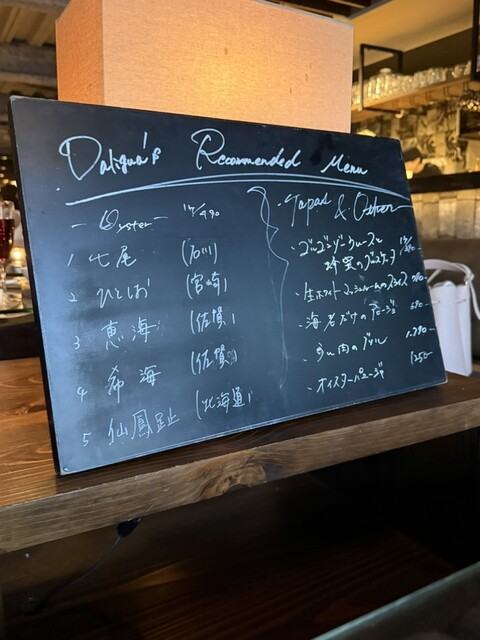 Daligua's Recommended Menu
- Oyster - 1P/490
1 七尾 (石川)
2 ひとしお (宮崎)
3 恵海 (佐賀)
4 希海 (佐賀)
5 仙鳳趾 (北海道)
Tapas & Other
・ゴルゴンゾーラムースと
蜂蜜のブルスケッタ 1P/
・生ホワイトマッシュルームのスライス
・海老だけのアヒージョ
・うに肉のグリル 1.290
・オイスターアヒージョ 1250-